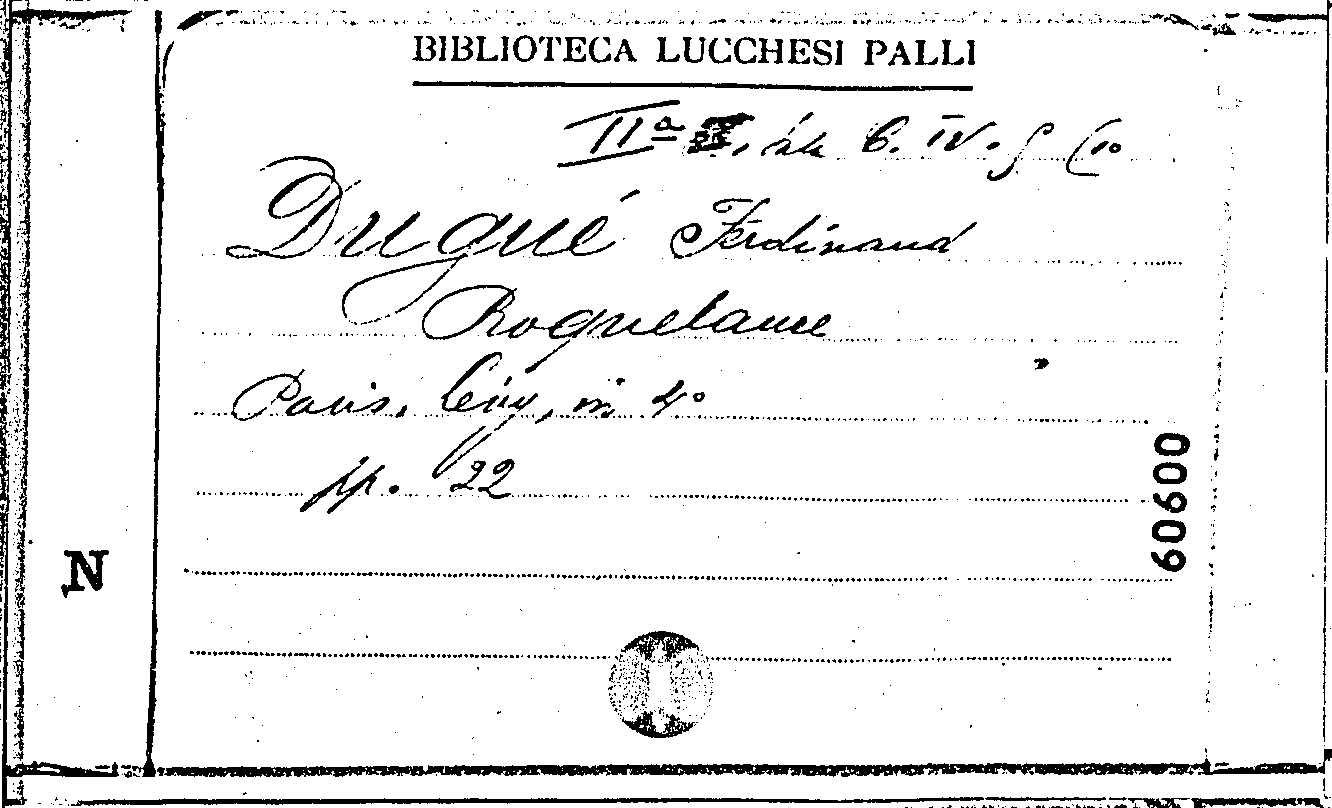 BIBLIOTECA LUCCHESI PALLI
IIª sala C. IV. 5 (10
Dugué Ferdinand
Roquelaure
Paris, Lévy, in 4º
pp. 22
N
60600